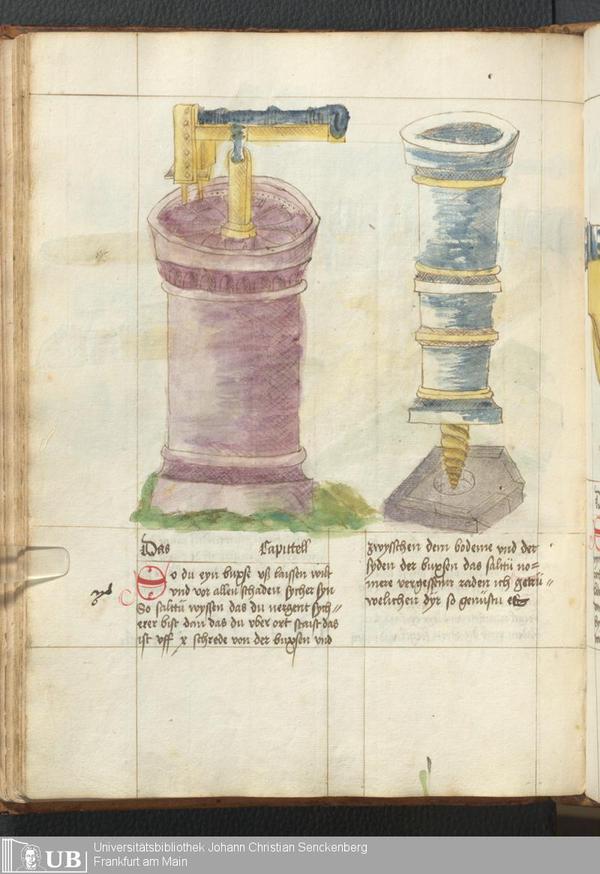 Das Capittell
So du eyn buxse uß laissen wilt
und vor allen schaden sycher syn
So saltu wyssen das du nergent sych=
erer bist dan das du uber ort staist das
ist uff x schrede von der buxsen und
zwysschen dem bodeme und der
syden der buxsen das saltu no=
mere vergessenn raden ich getru=
welichen dyr so genustu
Universitätsbibliothek Johann Christian Senckenberg
Frankfurt am Main
UB